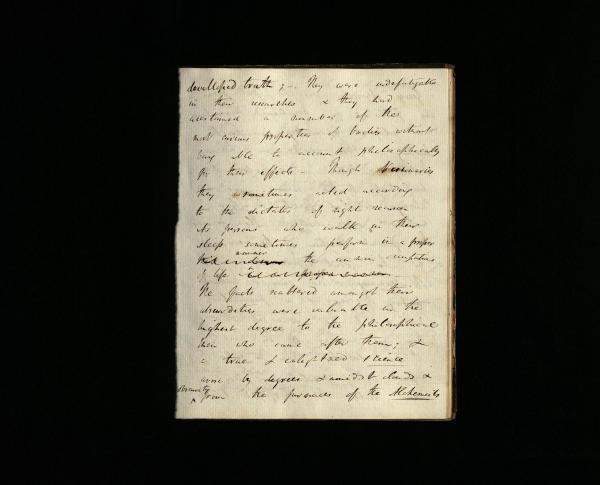 developed truth; –. They were indefatigable
in their researches & they had
ascertained a number of the
most curious properties of bodies without
being able to account philosophically
for their effects – Though visionaries
they sometimes acted according
to the dictates of right reason
As persons who walk in their
sleep sometimes perform in a proper
manner
the common occupations
of life
The facts scattered amongst their
absurdities were valuable in the
highest degree to the philosophical
men who came after them; &
a true & enlightened science
arose by degrees & amidst clouds &
obscurity
from the furnaces of the Alchemists